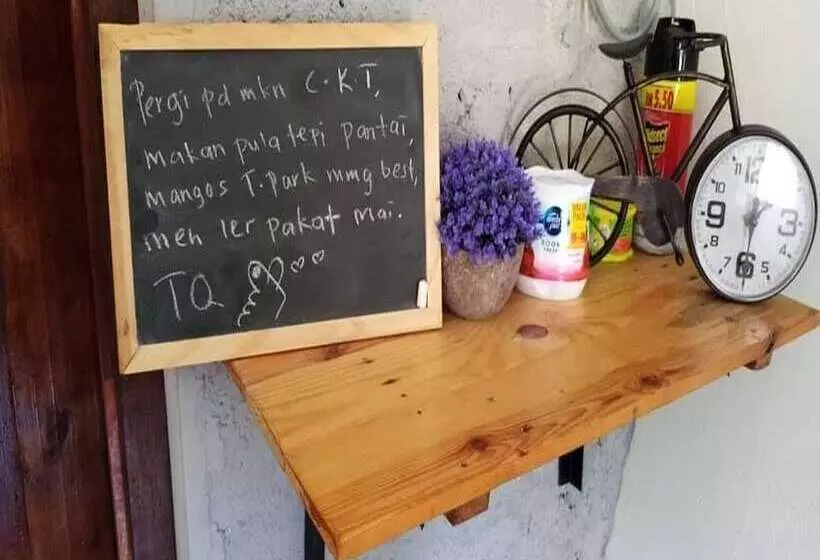 Pergi pd mkn C.K.T,
makan pula tepi pantai,
mangos T.Park mmg best,
meh ler pakat mai.
TQ
RM 5.50
VALUE
11 12
10
9 3
8
7 6 5